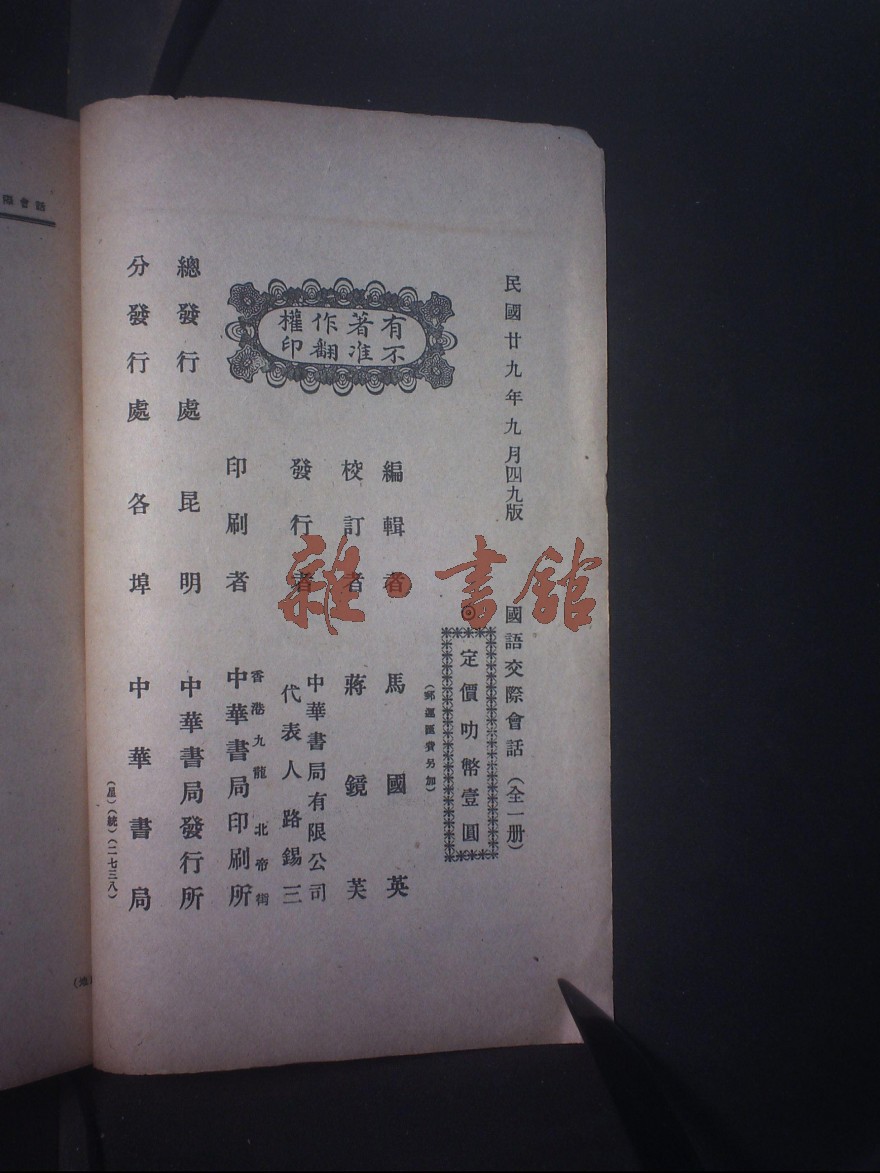 民國廿九年九月四九版
國語交際會話（全一册）
◎定價叻幣壹圓
（郵運匯費另加）
編輯者 馬國英
校訂者 蔣鏡芙
發行者 中華書局有限公司
代表人 路錫三
印刷者 香港九龍 北帝街
中華書局印刷所
有著作權
不准翻印
總發行處 昆明 中華書局發行所
分發行處 各埠 中華書局
（統）（二七三八）
際會話
雜·書館